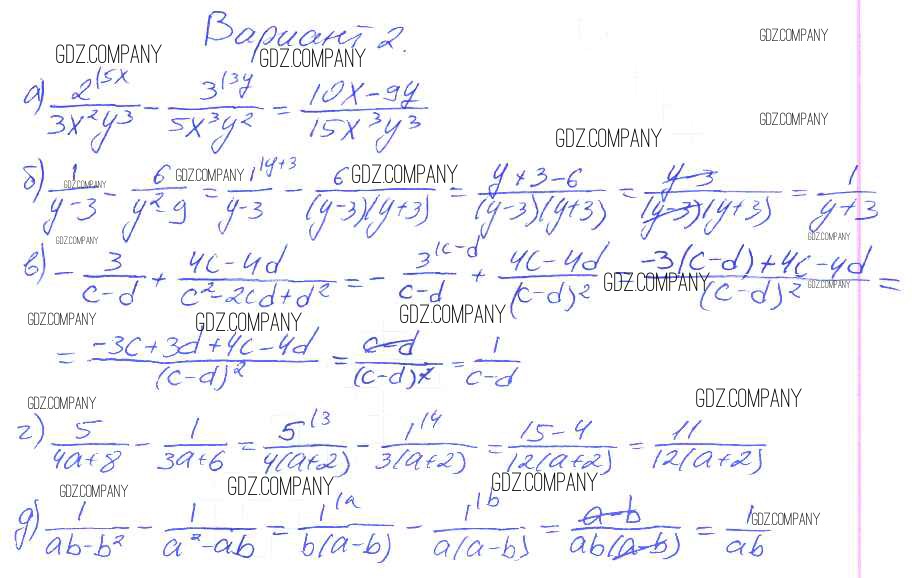 Вариант 2.
GDZ.COMPANY
GDZ.COMPANY
GDZ.COMPANY
а) 2^{\5x}/(3x²y³) - 3^{\3y}/(5x³y²) = (10x-9y)/(15x³y³)
GDZ.COMPANY
GDZ.COMPANY
б) 1/(y-3) - 6/(y²-9) = 1^{\y+3}/(y-3) - 6/((y-3)(y+3)) = (y+3-6)/((y-3)(y+3)) = (y-3)/((y-3)(y+3)) = 1/(y+3)
GDZ.COMPANY
GDZ.COMPANY
GDZ.COMPANY
GDZ.COMPANY
GDZ.COMPANY
в) - 3/(c-d) + (4c-4d)/(c²-2cd+d²) = - 3^{\c-d}/(c-d) + (4c-4d)/(c-d)² = (-3(c-d)+4c-4d)/(c-d)² =
GDZ.COMPANY
GDZ.COMPANY
GDZ.COMPANY
GDZ.COMPANY
GDZ.COMPANY
= (-3c+3d+4c-4d)/(c-d)² = (c-d)/(c-d)² = 1/(c-d)
GDZ.COMPANY
GDZ.COMPANY
г) 5/(4a+8) - 1/(3a+6) = 5^{\3}/(4(a+2)) - 1^{\4}/(3(a+2)) = (15-4)/(12(a+2)) = 11/(12(a+2))
GDZ.COMPANY
GDZ.COMPANY
GDZ.COMPANY
д) 1/(ab-b²) - 1/(a²-ab) = 1^{\a}/(b(a-b)) - 1^{\b}/(a(a-b)) = (a-b)/(ab(a-b)) = 1/(ab)
GDZ.COMPANY